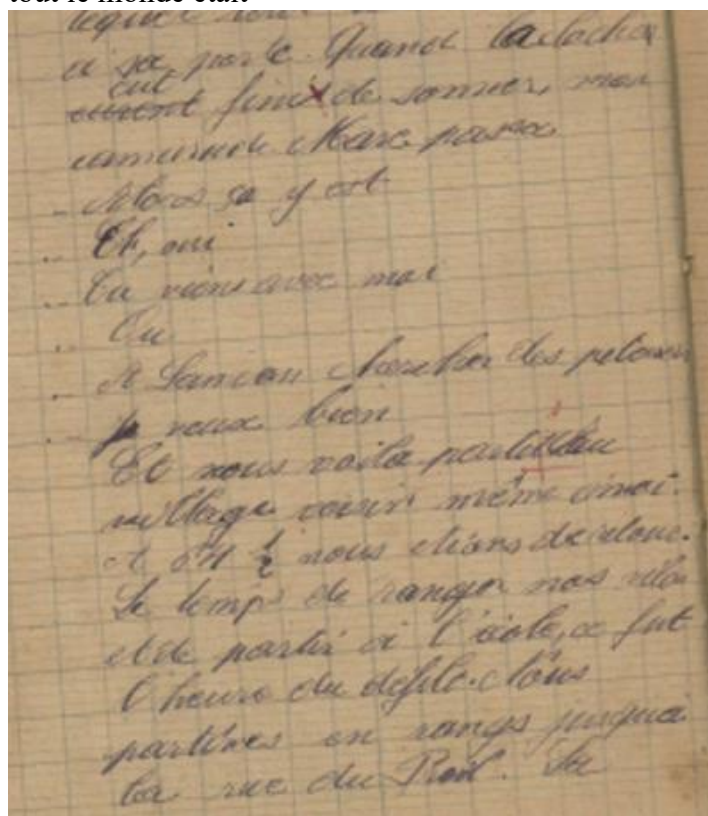 tout le monde était
à sa porte. Quand la cloche
eut fini de sonner, mon
camarade Marc passa
- Alors ça y est
- Eh, oui
- Tu viens avec moi
- Ou
- A Lancon chercher des pétards
- je veux bien
Et nous voila partis au
village voisin même émoi.
A 6H ½ nous étions de retour.
Le temps de ranger nos vélos
et de partir à l'école, ce fut
l'heure du défilé. Nous
partîmes en rangs jusqu'à
la rue du . La